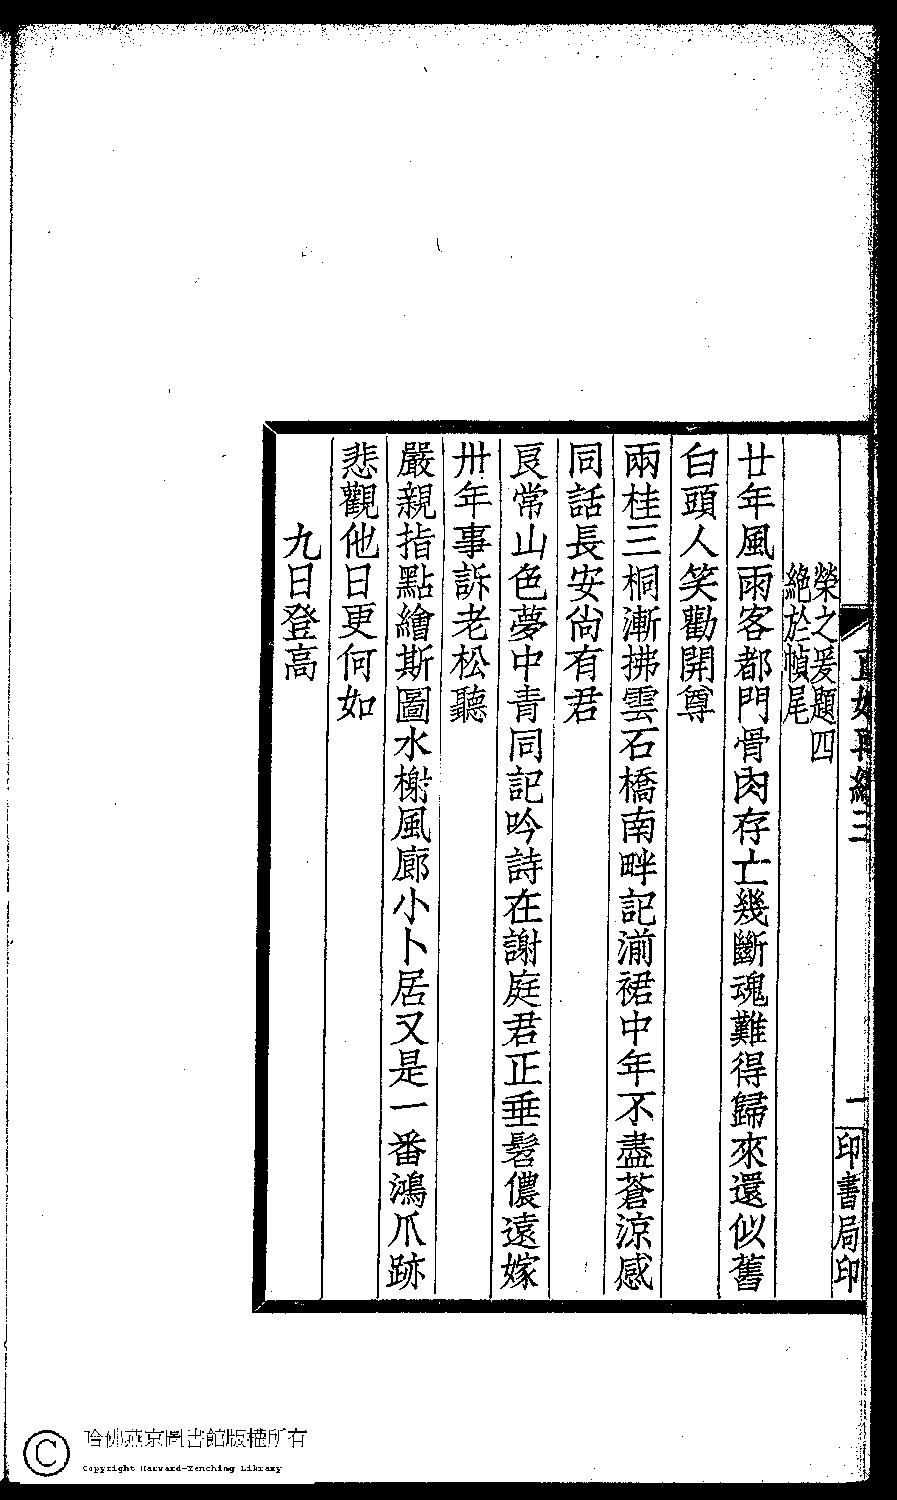 榮之爰題四
絕於幀尾
廿年風雨客都門骨肉存亡幾斷魂難得歸來還似舊
白頭人笑勸開尊
兩桂三桐漸拂雲石橋南畔記湔裙中年不盡蒼涼感
同話長安尙有君
良常山色夢中青同記吟詩在謝庭君正垂髫儂遠嫁
卅年事訴老松聽
嚴親指點繪斯圖水榭風廊小卜居又是一番鴻爪跡
悲觀他日更何如
九日登高
一
印書局印
哈佛燕京圖書館版權所有
Copyright Harvard-Yenching Library